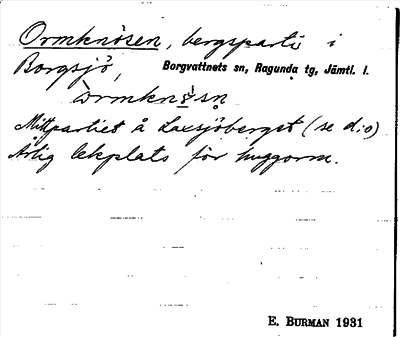 Ormknösen, bergsparti i
Borgsjö, Borgvattnets sn, Ragunda tg, Jämtl. l.
Mittpartiet å Laxsjöberget (se d:o)
Årlig lekplats för huggorm.
E. BURMAN 1931